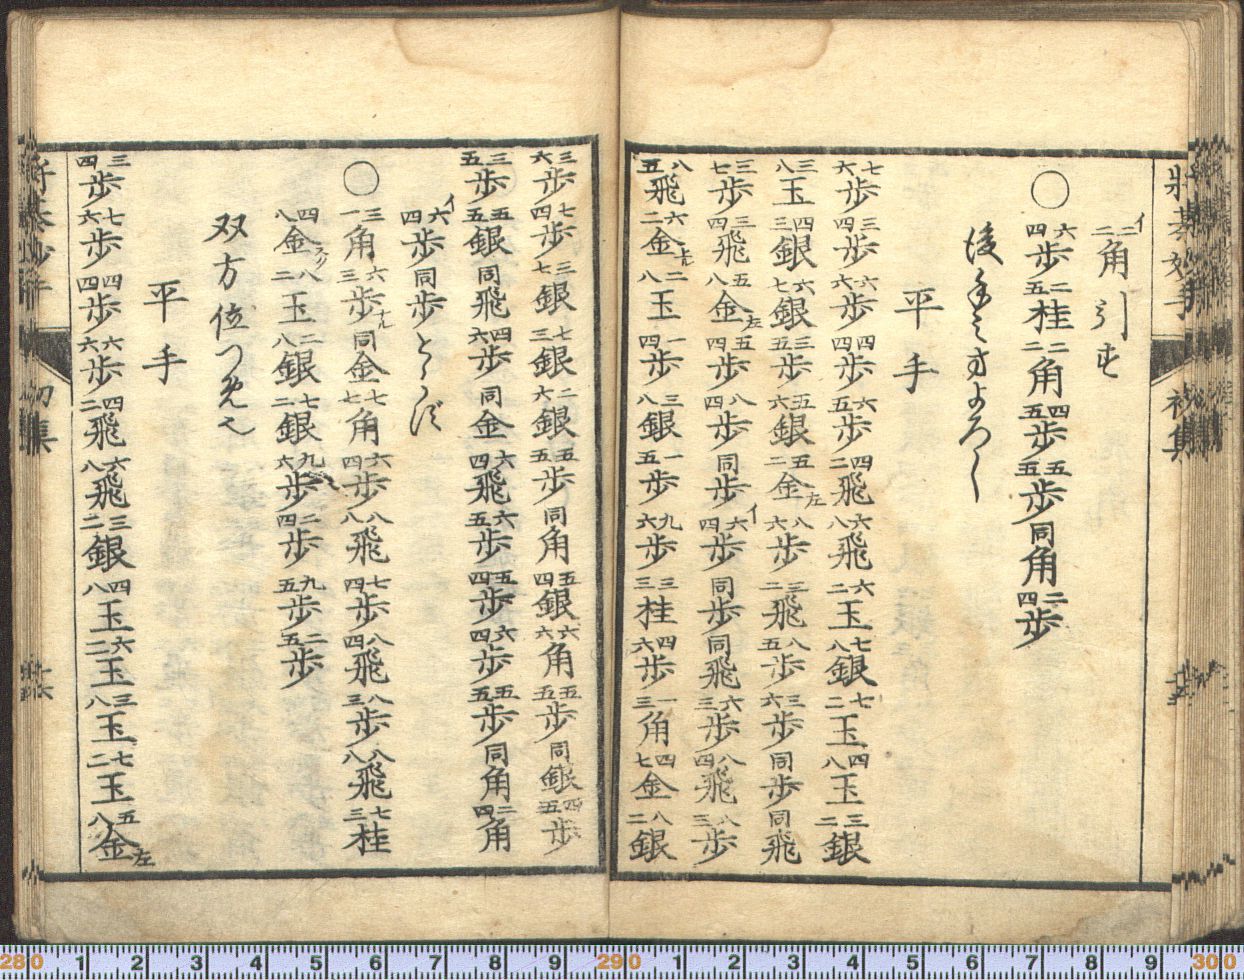 將棊妙手 初集
イ二二角引て
○六四歩二五桂二二角四五歩五五歩同角二四歩
後手之方よろし
平手
七六歩三四歩二六歩四四歩六五歩四二飛六八飛六二玉七八銀七二玉四八玉三二銀
三八玉四三銀六七銀三五歩五六銀五二金左八六歩三二飛八五歩三六歩同歩同飛
三七歩三四飛五八金左五四歩八四歩同歩イ六四歩同歩同飛六三歩八四飛八三歩
八五飛六二金上二八玉一四歩三八銀一五歩九六歩三三桂四六歩一三角四七金八二銀
三六歩七四歩三七銀七三銀二六銀五五歩同角五四銀六六角五五歩同銀四五歩
三五歩五五銀同飛四六歩同金六四飛六五歩五四歩六四歩五五歩同角二四角
イ六四歩同歩とらば
○三一角六三歩ナル同金七七角六四歩八八飛七四歩八四飛八三歩八八飛七三桂
四八金八二玉二八銀七二銀九六歩二四歩九五歩二五歩
双方位つめ也
平手
三四歩七六歩四四歩六六歩四二飛六八飛三二銀四八玉六二玉三八玉七二玉五八金左